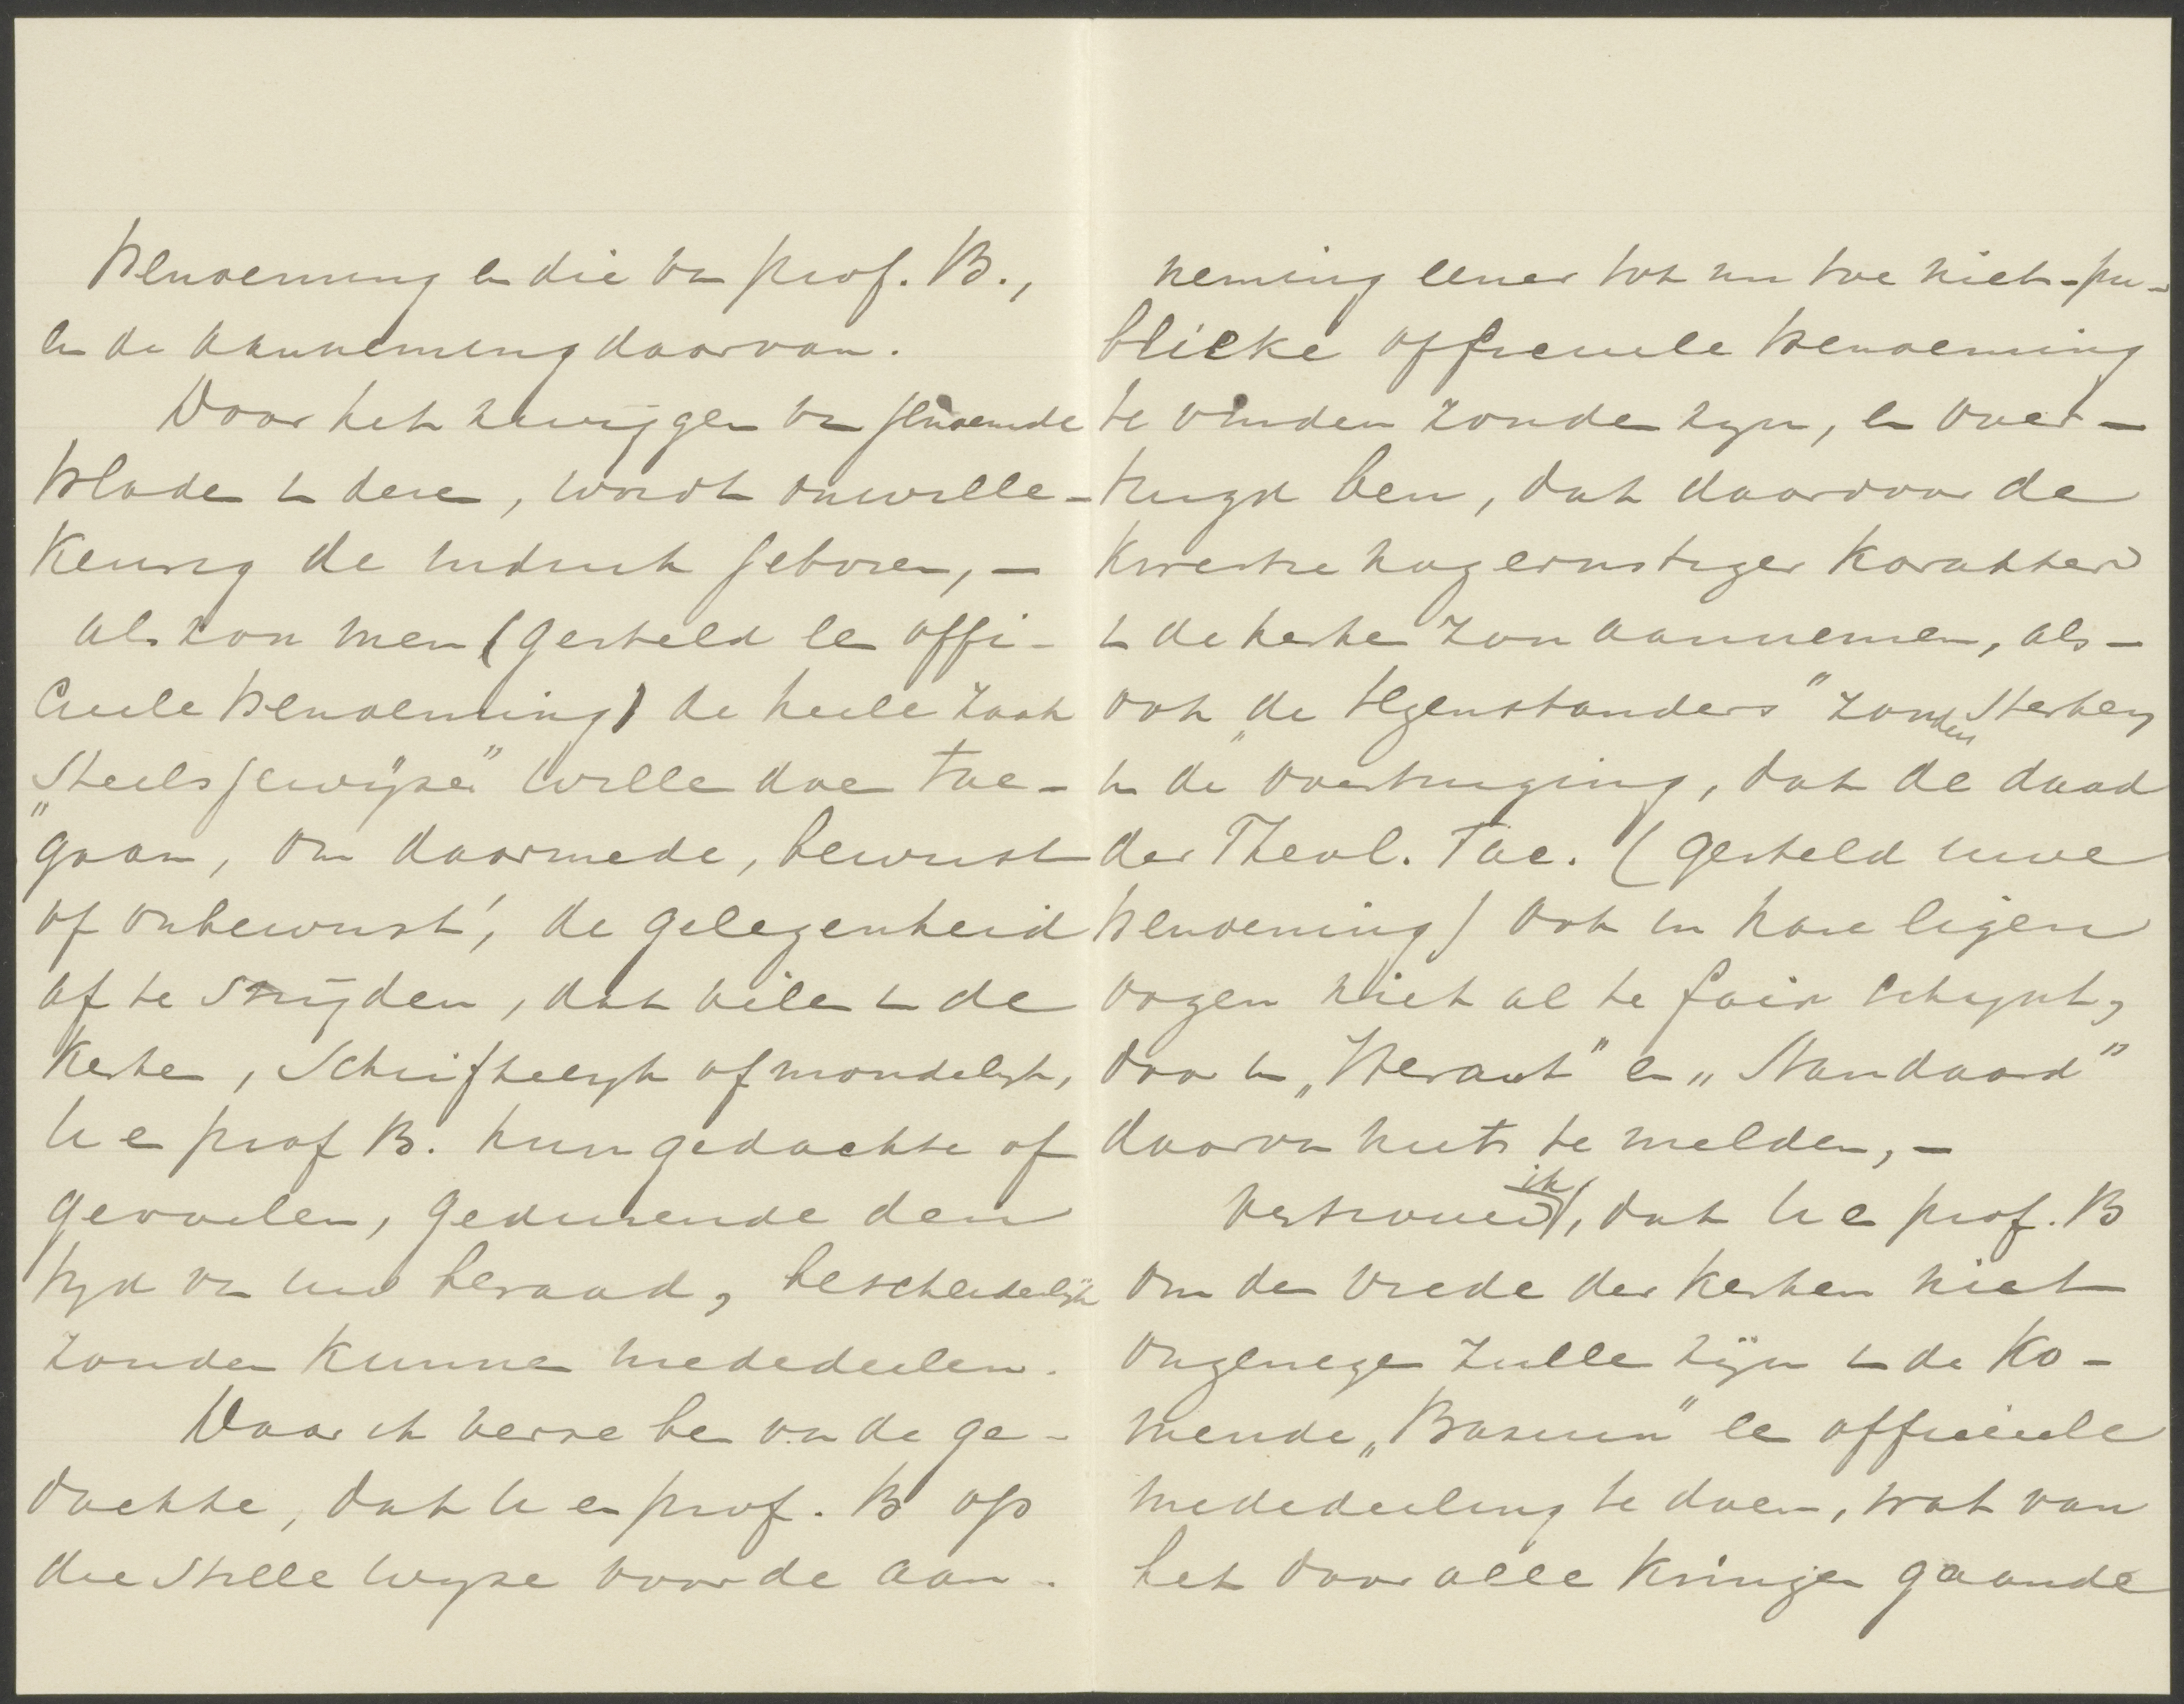 benoeming en die van prof. B.,
en de aanneming daarvan.
Door het zwijgen van genoemde
bladen in deze, wordt onwille-
keurig de indruk geboren, -
als zou men (gesteld een offi-
cieele benoeming) de heele zaak
"steelsgewijze" willen doen toe-
gaan, om daarmede, bewust
of onbewust, de gelegenheid
af te snijden, dat velen in de
kerken, schriftelijk of mondelijk,
U en prof B. hun gedachte of
gevoelen, gedurende den
tijd van uw beraad, bescheidenlijk
zouden kunnen mededeelen.
Daar ik verre ben van de ge-
dachte, dat U en prof. B op
die stille wijze voor de aan-
neming eener tot nu toe niet-pu-
blieke officieele benoeming
te vinden zouden zijn, en over-
tuigd ben, dat daardoor de
kwestie nog ernstiger karakter
in de kerken zou aannemen, als-
ook "de tegenstanders" zouden sterken
in de overtuiging, dat de daad
der Theol. Fac. (gesteld uwe
benoeming) ook in hare eigen
oogen niet al te fair schijnt,
door in "Heraut" en "Standaard"
daarvan niets te melden, -
vertrouw ik, dat U en prof. B
om den vrede der kerken niet
ongenegen zullen zijn in de ko-
mende "Bazuin" een officieele
mededeeling te doen, wat van
het door alle kringen gaande